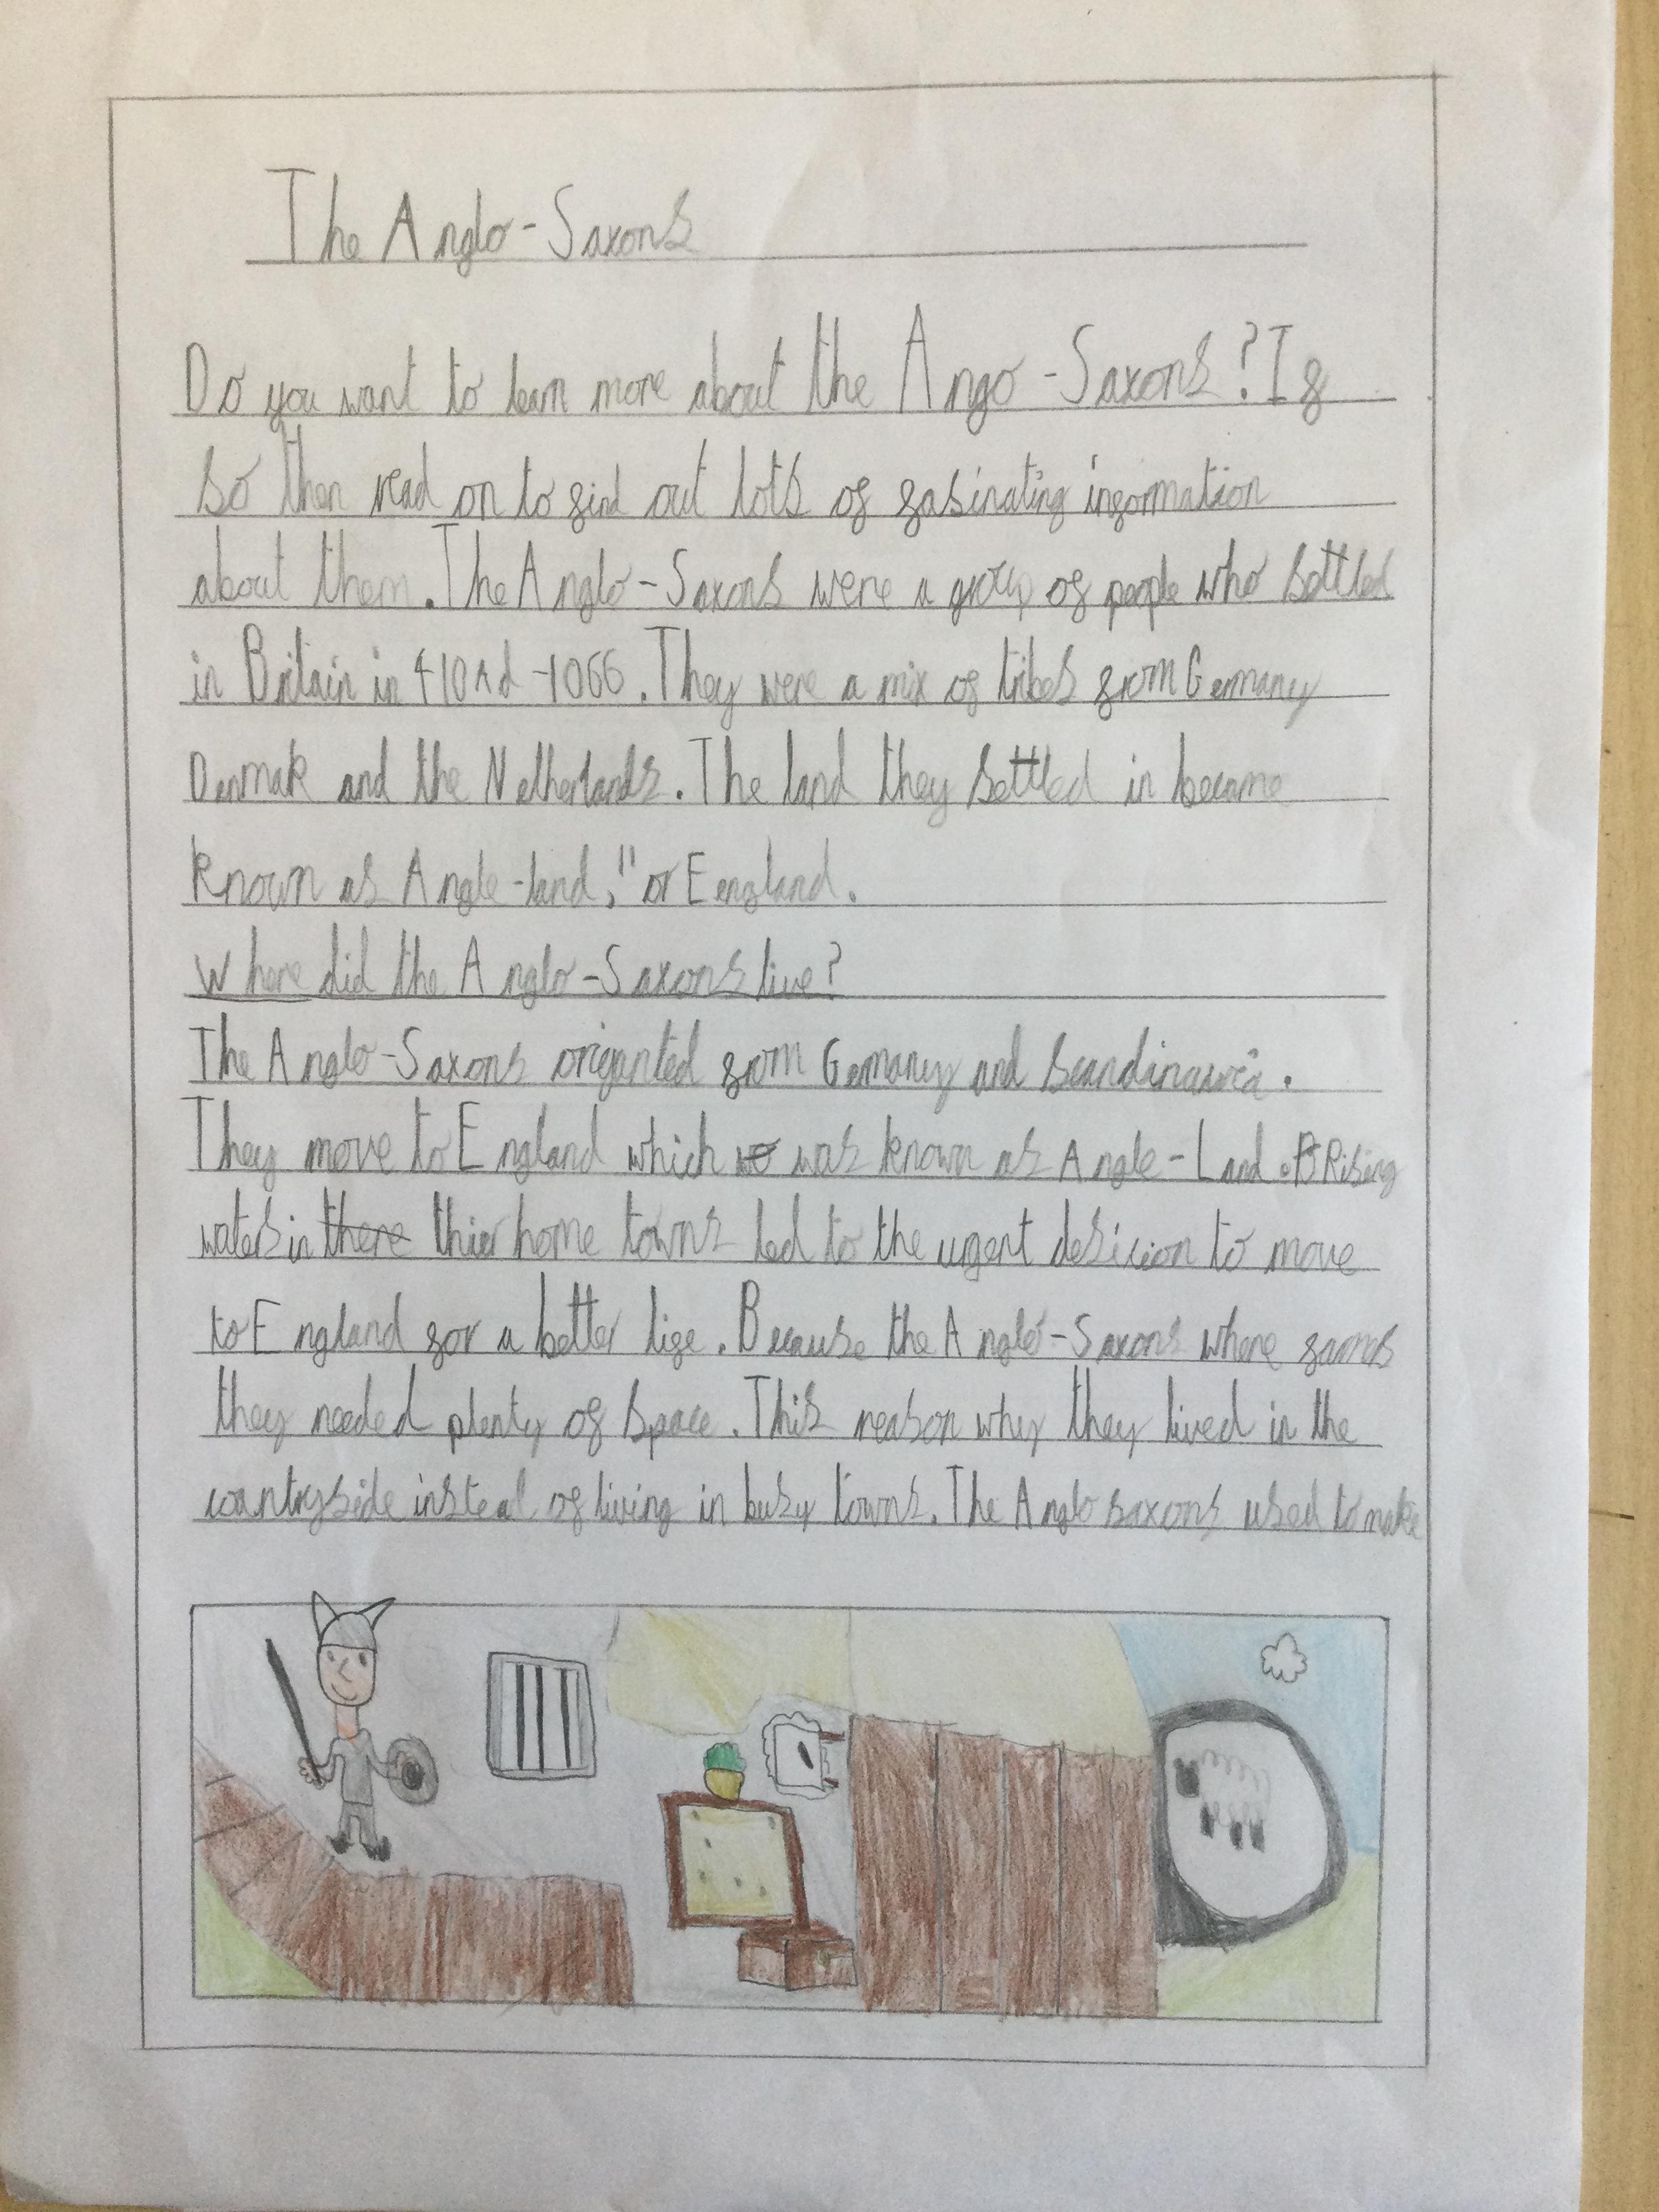 The Anglo-Saxons
Do you want to learn more about the Ango-Saxons? If
so then read on to find out lots of fasinating information
about them. The Anglo-Saxons were a group of people who settled
in Britain in 410Ad-1066. They were a mix of tribes from Germany
Denmak and the Netherlands. The land they settled in became
known as Angle-land," or Eengland.
Where did the Anglo-Saxons live?
The Anglo-Saxons origanted from Gemany and Scandinavia.
They move to England which was known as Angle-Land. Rising
waters in there thier home towns led to the urgent desicion to move
to England for a better life. Because the Anglo-Saxons where
they needed plenty of space. This reason why they lived in the
countryside instead of living in busy towns. The Anglo saxons used to make